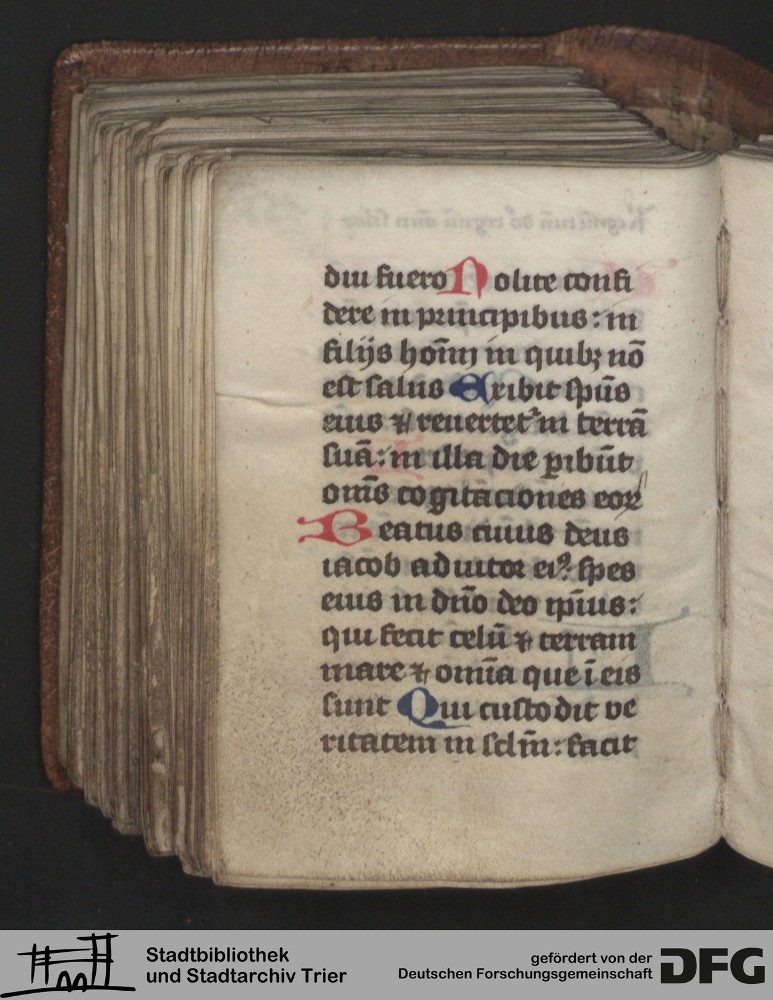 diu fuero Nolite confi
dere in principibus: in
filijs hoīnꝫ in quibꝫ nō
est salus Exibit spūs
eius ⁊ reuertetᷣ in terrā
suā: in illa die ꝑibūt
om̄s cogitaciones eoꝝ
Beatus cuius deus
iacob adiutor eiꝰ: spes
eius in dn̄o deo ip̄ius:
qui fecit celū ⁊ terram
mare ⁊ omīa que ī eis
sunt Qui custodit ve
ritatem in sclm̄: facit
Stadtbibliothek
und Stadtarchiv Trier
gefördert von der
Deutschen Forschungsgemeinschaft
DFG